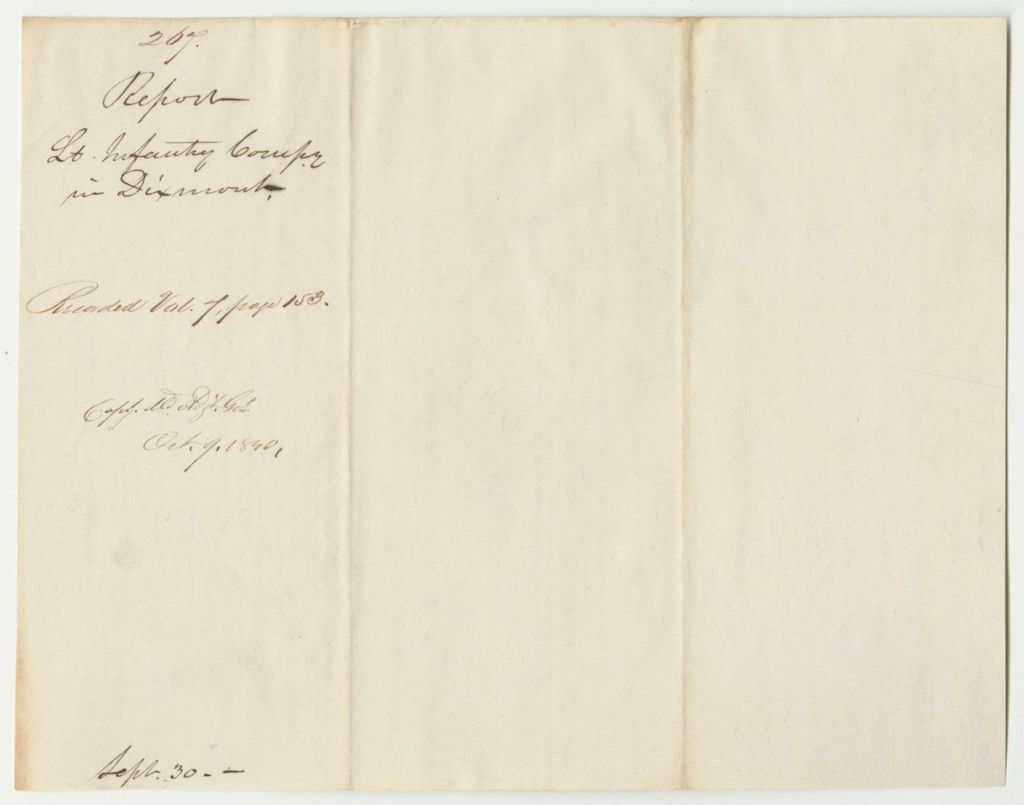 267.
Report
Lt. Infantry Compy
in Dixmont.
Recorded Vol. 7, page 153.
Copy. dd. Adjt. Genl.
Oct. 9. 1840,
Sept. 30 - -